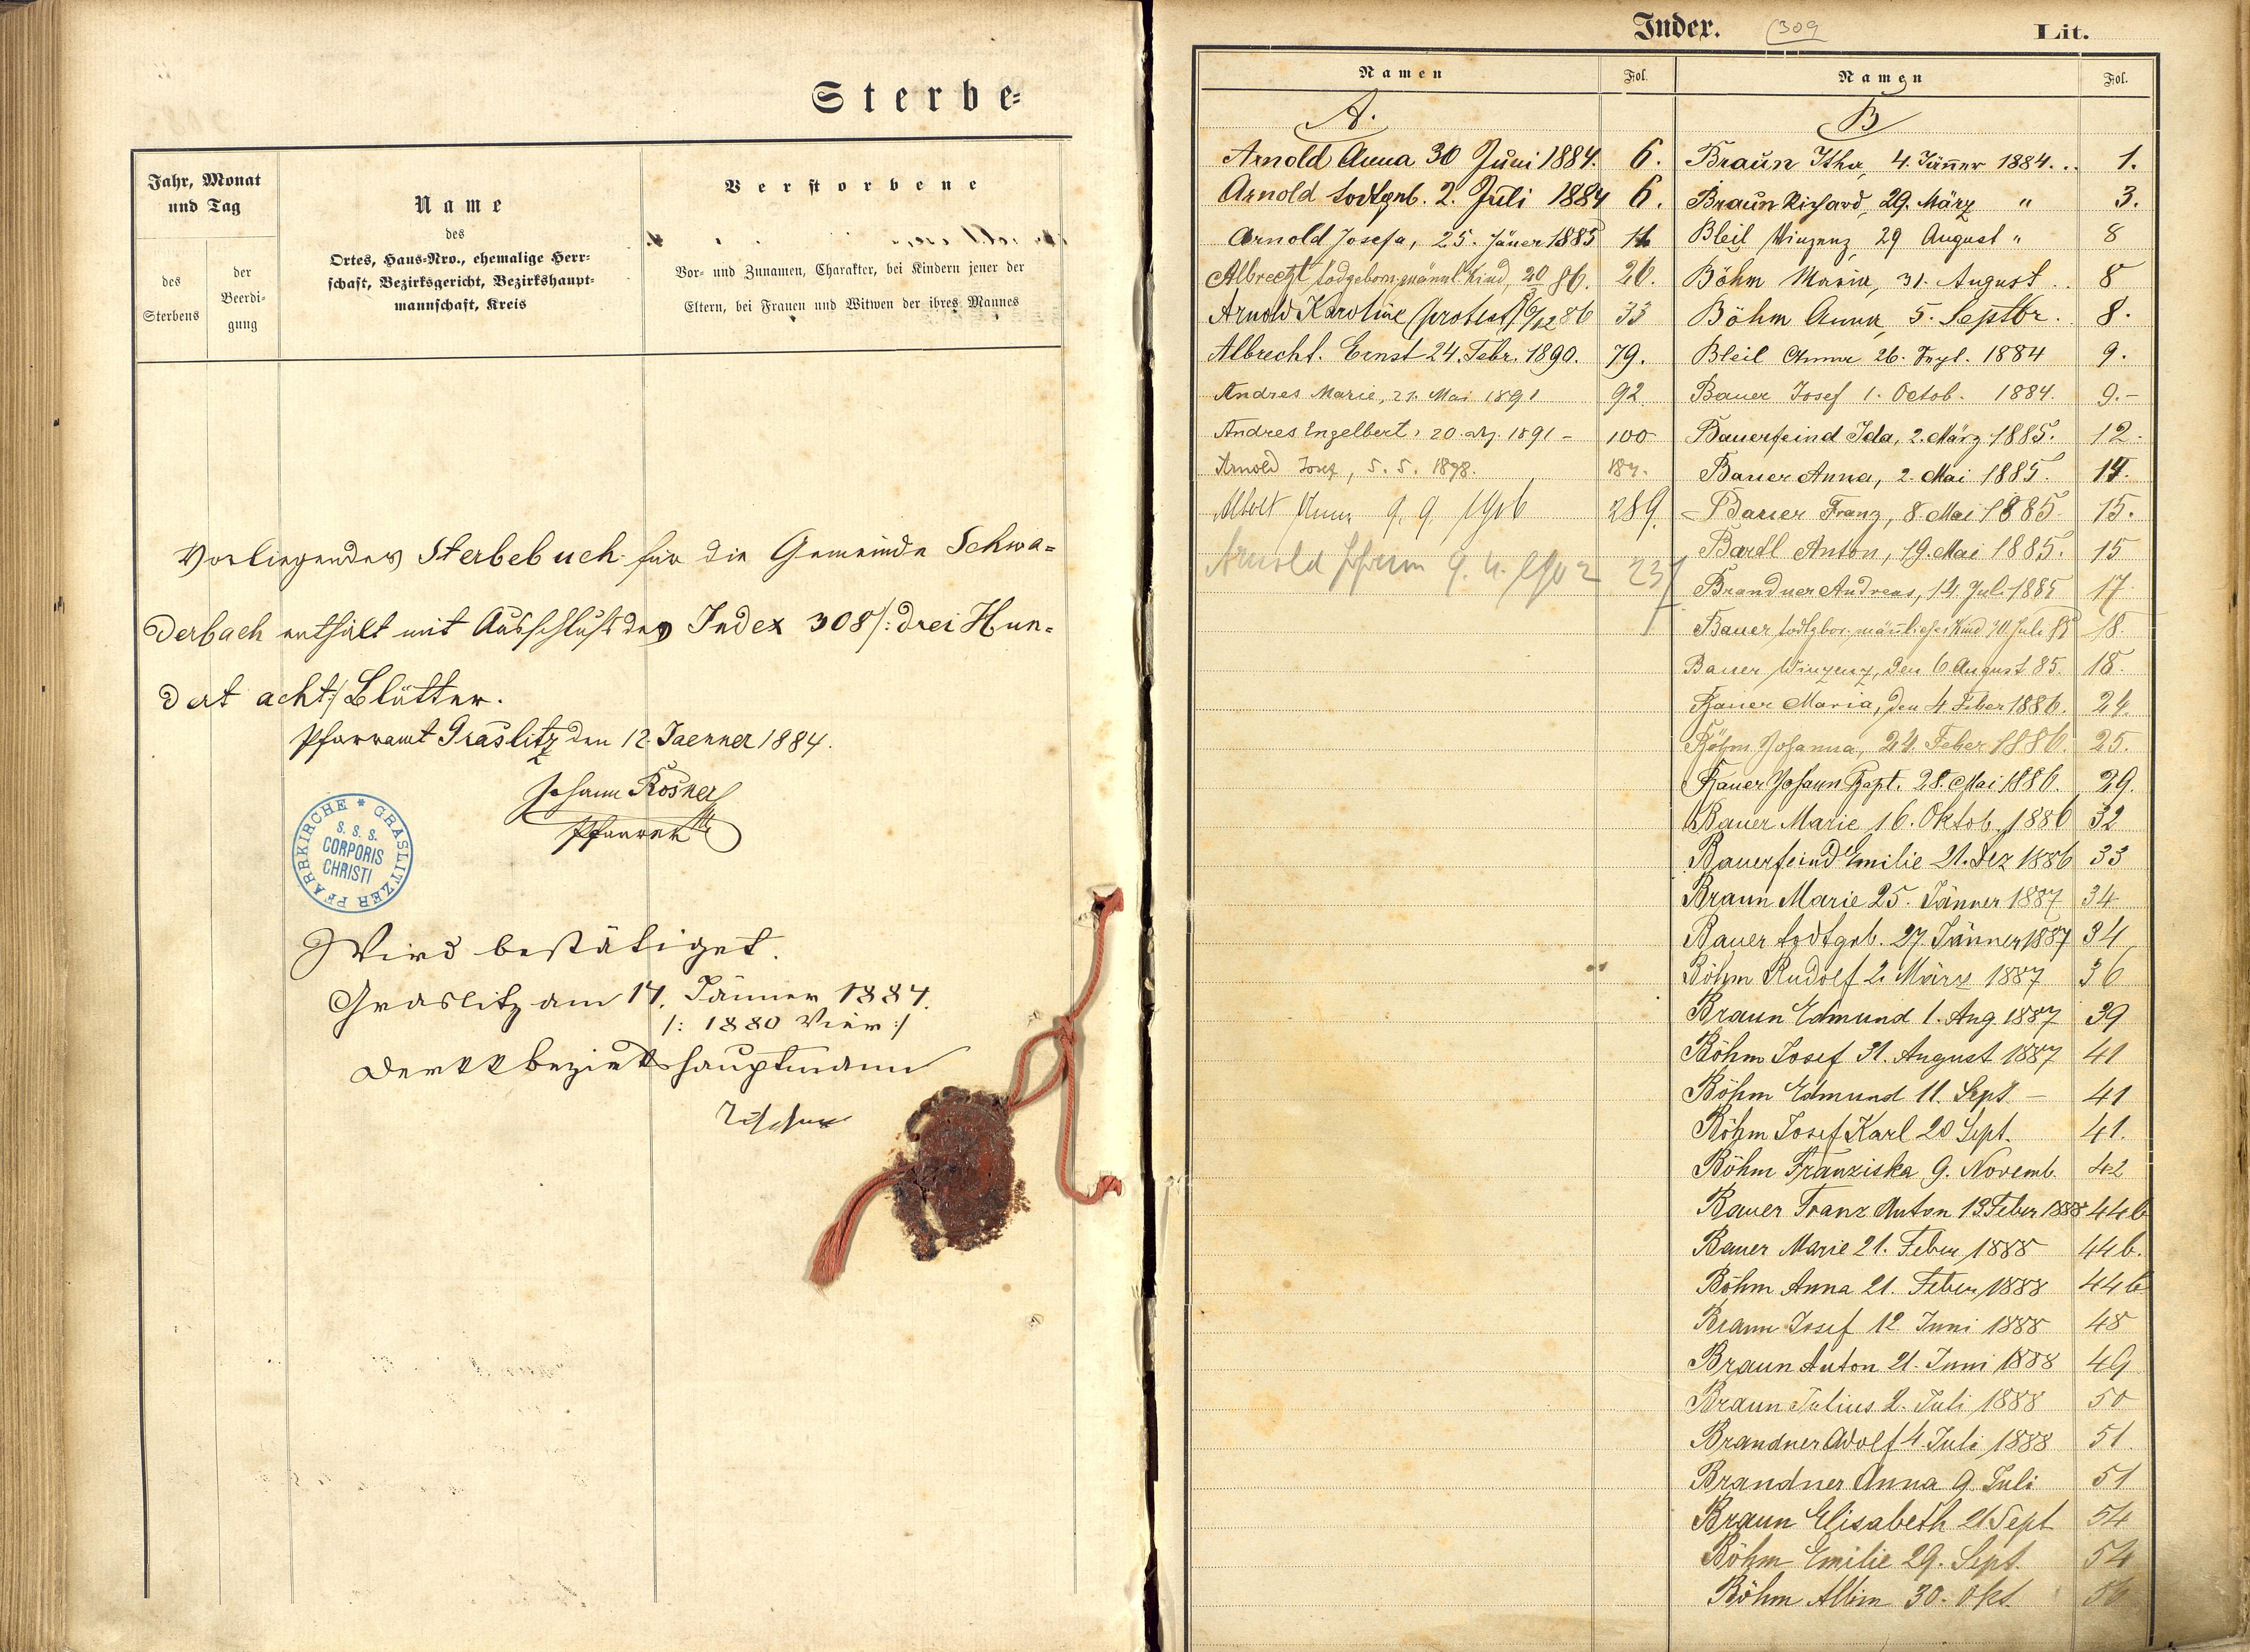 Sterbe=
Jahr, Monat
und Tag
des
Sterbens
der
Beerdi-
gung
Name
des
Ortes, Haus-Nro., ehemalige Herr-
schaft, Bezirksgericht, Bezirkshaupt-
mannschaft, Kreis
Verstorbene
Vor- und Zunamen, Charakter, bei Kindern jener der
Eltern, bei Frauen und Witwen der ihres Mannes
Vorliegendes Sterbebuch für die Gemeinde Schwa=
derbach enthält mit Ausschluß des Index 308/: drei Hun=
dert acht :/ Blätter.
Pfarramt Graslitz den 12. Jaenner 1884.
Johann Rösner
Pfarrer
GRASLITZER PFARRKIRCHE *
S. S. S.
CORPORIS
CHRISTI
Wird bestätiget.
Graslitz am 14. Jänner 1884.
/: 1880 Vier :/
Der kk Bezirkshauptmann
Index. 309 Lit.
Namen Fol.
A.
Arnold Anna 30 Juni 1884. 6.
Arnold todtgeb. 2. Juli 1884 6.
Arnold Josefa, 25. Jäner 1885 11
Albrecht todgeborn. männl. Kind, 20/3 86. 26.
Arnold Karoline (protest) 6/12 86 33
Albrecht. Ernst 24. Febr. 1890. 79.
Andres Marie, 21. Mai 1891 92
Andres Engelbert, 20. 1891 - 100
Arnold Josef, 5. 5. 1898. 187.
9. 9. 1906 289.
Arnold 9. 4. 1902 237
Namen Fol.
B
Braun Itha, 4. Jänner 1884... 1.
Braun Richard, 29. März " 3.
Bleil Vinzenz, 29 August " 8
Böhm Maria, 31. August .. 8
Böhm Anna, 5. Septbr. 8.
Bleil Anna 26. Sept. 1884 9.
Bauer Josef 1. Octob. 1884. 9.-
Bauerfeind Ida, 2. März 1885. 12.
Bauer Anna, 2. Mai 1885. 14.
Bauer Franz, 8. Mai 1885 15.
Bartl Anton, 19. Mai 1885. 15
Brandner Andreas, 14. Juli 1885 17
Bauer todtgbor. männliches Kind 30. Juli 85 18.
Bauer Vinzenz, den 6. August 85. 18.
Bauer Maria, den 4 Feber 1886. 24.
Böhm Johanna, 24. Feber 1886. 25.
Bauer Johann Bapt. 28. Mai 1886. 29.
Bauer Marie 16. Oktob. 1886 32
Bauerfeind Emilie 21. Dez 1886 33
Braun Marie 25. Jänner 1887 34
Bauer todtgeb. 27. Jänner 1887 34
Böhm Rudolf 2. März 1887 36
Braun Edmund 1. Aug 1887 39
Böhm Josef 31. August 1887 41
Böhm Edmund 11. Sept - 41
Böhm Josef Karl 20 Sept. 41.
Böhm Franziska 9. Novemb. 42
Bauer Franz Anton 13 Feber 1888 44b
Bauer Marie 21. Feber 1888 44b.
Böhm Anna 21. Feber 1888 44b
Braun Josef 12. Juni 1888 48
Braun Anton 21. Juni 1888 49
Braun Julius 2. Juli 1888 50
Brandner Adolf 4. Juli 1888 51.
Brandner Anna 9 Juli 51
Braun Elisabeth 21 Sept 54
Böhm Emilie 29. Sept. 54
Böhm Albin 30. Okt. 56